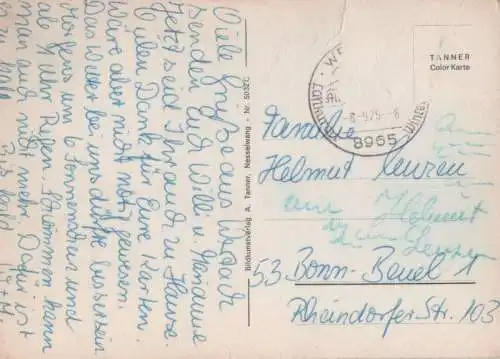 Viele Grüße aus Wertach
senden Euch Willi u. Marianne
Jetzt seid Ihr auch zu Hause.
Vielen Dank für Eure Karten.
Wäre aber nicht nötig gewesen.
Das Wetter bei uns dürfte besser sein.
Morgens um 10 Sonnenschein und
ab 4 Uhr Regen. Schwimmen kann
man auch nicht mehr. Dafür ist
es zu kalt
Bis bald
Bildkunstverlag A. Tanner, Nesselwang - Nr. 5032C
TANNER
Color Karte
8965
Familie
Helmut Leuzen
an Helmut
53 Bonn-Beuel 1
Rheindorfer Str. 103